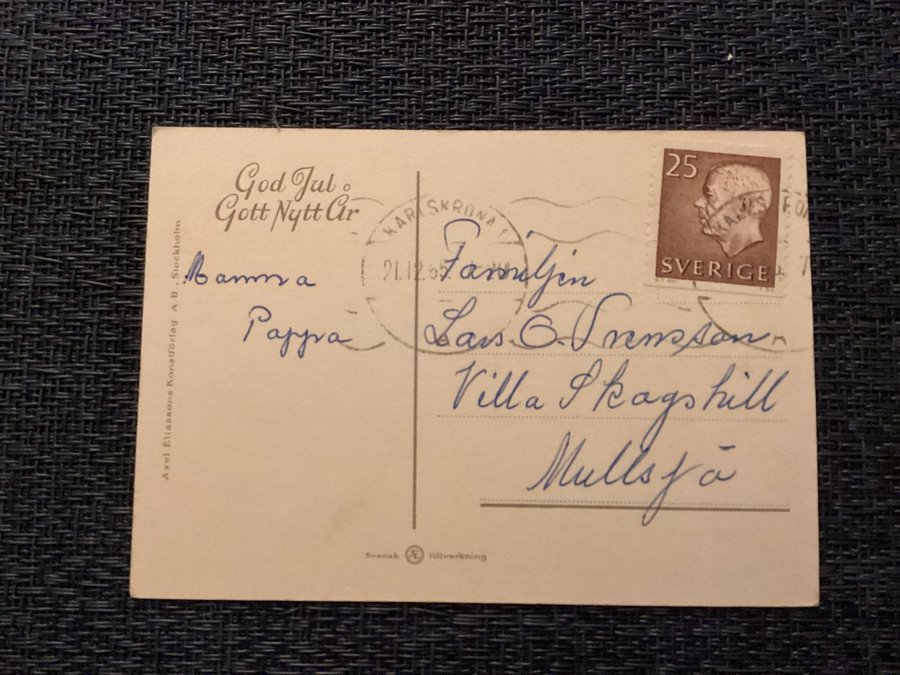 God Jul
Gott Nytt År
Mamma
Pappa
Axel Eliassons Konstförlag A.B., Stockholm
KARLSKRONA 1
21.12.65
25
SVERIGE
Familjen
Lars O. Svensson
Villa Skogshill
Mullsjö
Svensk Æ tillverkning